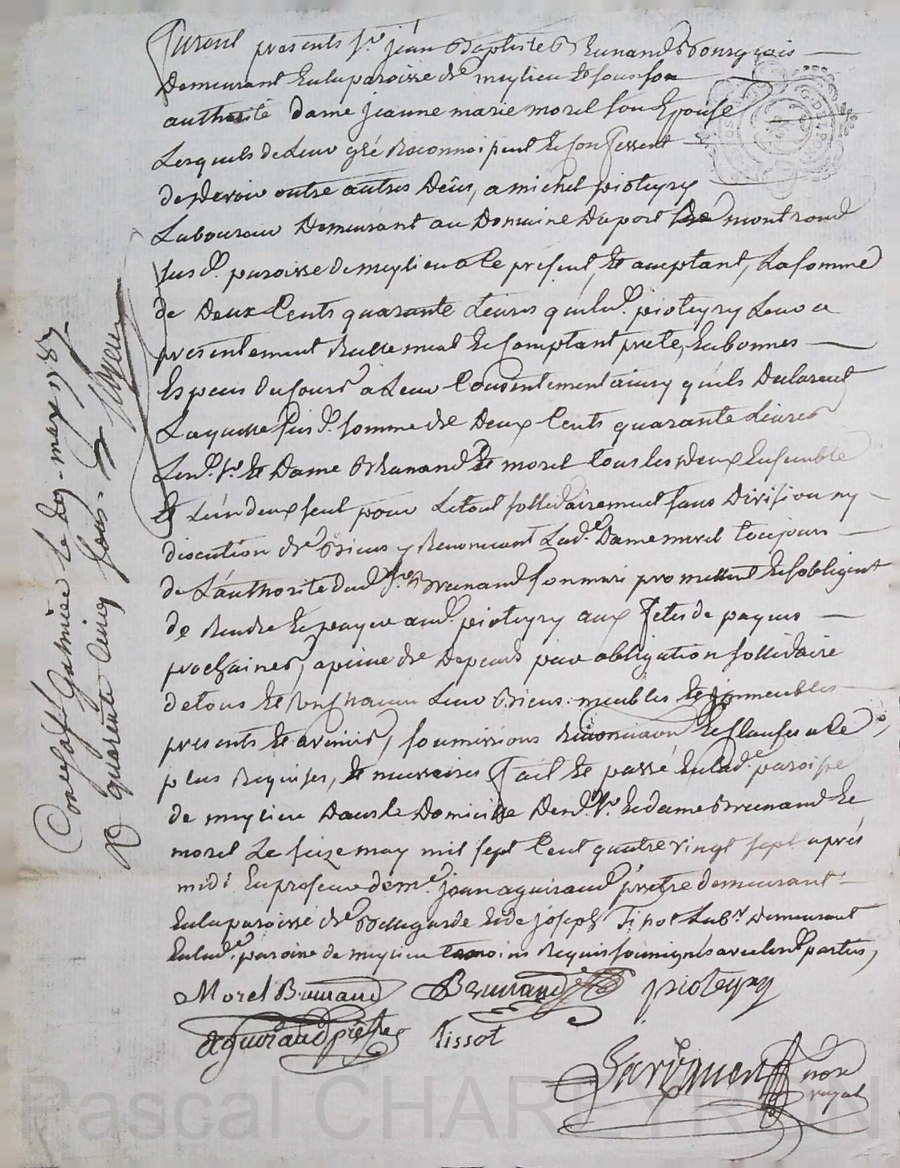 furent presents Sr jean Baptiste Brunand Bourgeois
Demeurant en la paroisse de meylieu et sous son
authorité dame jeanne marie morel son Epouse
Lesquels de Leur gré Reconnoissent et confessent
de devoir outre autres deûs, a michel pioteyry
Laboureur Demeurant au Domaine Duport De montrond
sus de. paroisse de meylieu a ce present, et acceptant, La somme
de Deux Cents quarante Livres que led. pioteyry Leur a
presentement Reellement et Comptant preté, en bonnes
Especes du Cours a Leur Contentement ainsy quils Declarent
Laquelle susd. somme de Deux Cents quarante Livres
Lesd. Sr. et Dame Brunand et morel tous les deux Ensemble
et L'un deux seul pour Le tout sollidairement sans Division ny
discution de Biens y Renoncant Lade. Dame morel toujours
de L'authorité dud. Sr Brunand son mari promettent et sobligent
de Rendre et payer aud. pioteyry aux fetes de paques
prochaines, a peine de Depens pour obligation sollidaire
de tous et Leur Biens meubles et immeubles
presents et avenir, soumissions Renonciaon et Clauses a ce
plus Requises, et necessaires fait et passé en lade. paroisse
de meylieu Dans le Domicille Desd. Sr. et dame Brunand et
morel Le seize may mil sept Cent quatre vingt sept après
midi En presence de me. jean aguiraud prêtre demeurant
En la paroisse de Bellegarde et de joseph Tissot Labr. Demeurant
En lade. paroisse de meylieu temoins Requis soussignés avec lesd. parties,
Morel Brunand Brunand pioteyry
Aguiraud prêtre Tissot
nore
royal
Controllé a Galmier le dix may 1787
R quarante cinq sous
Pascal CHAR TRON